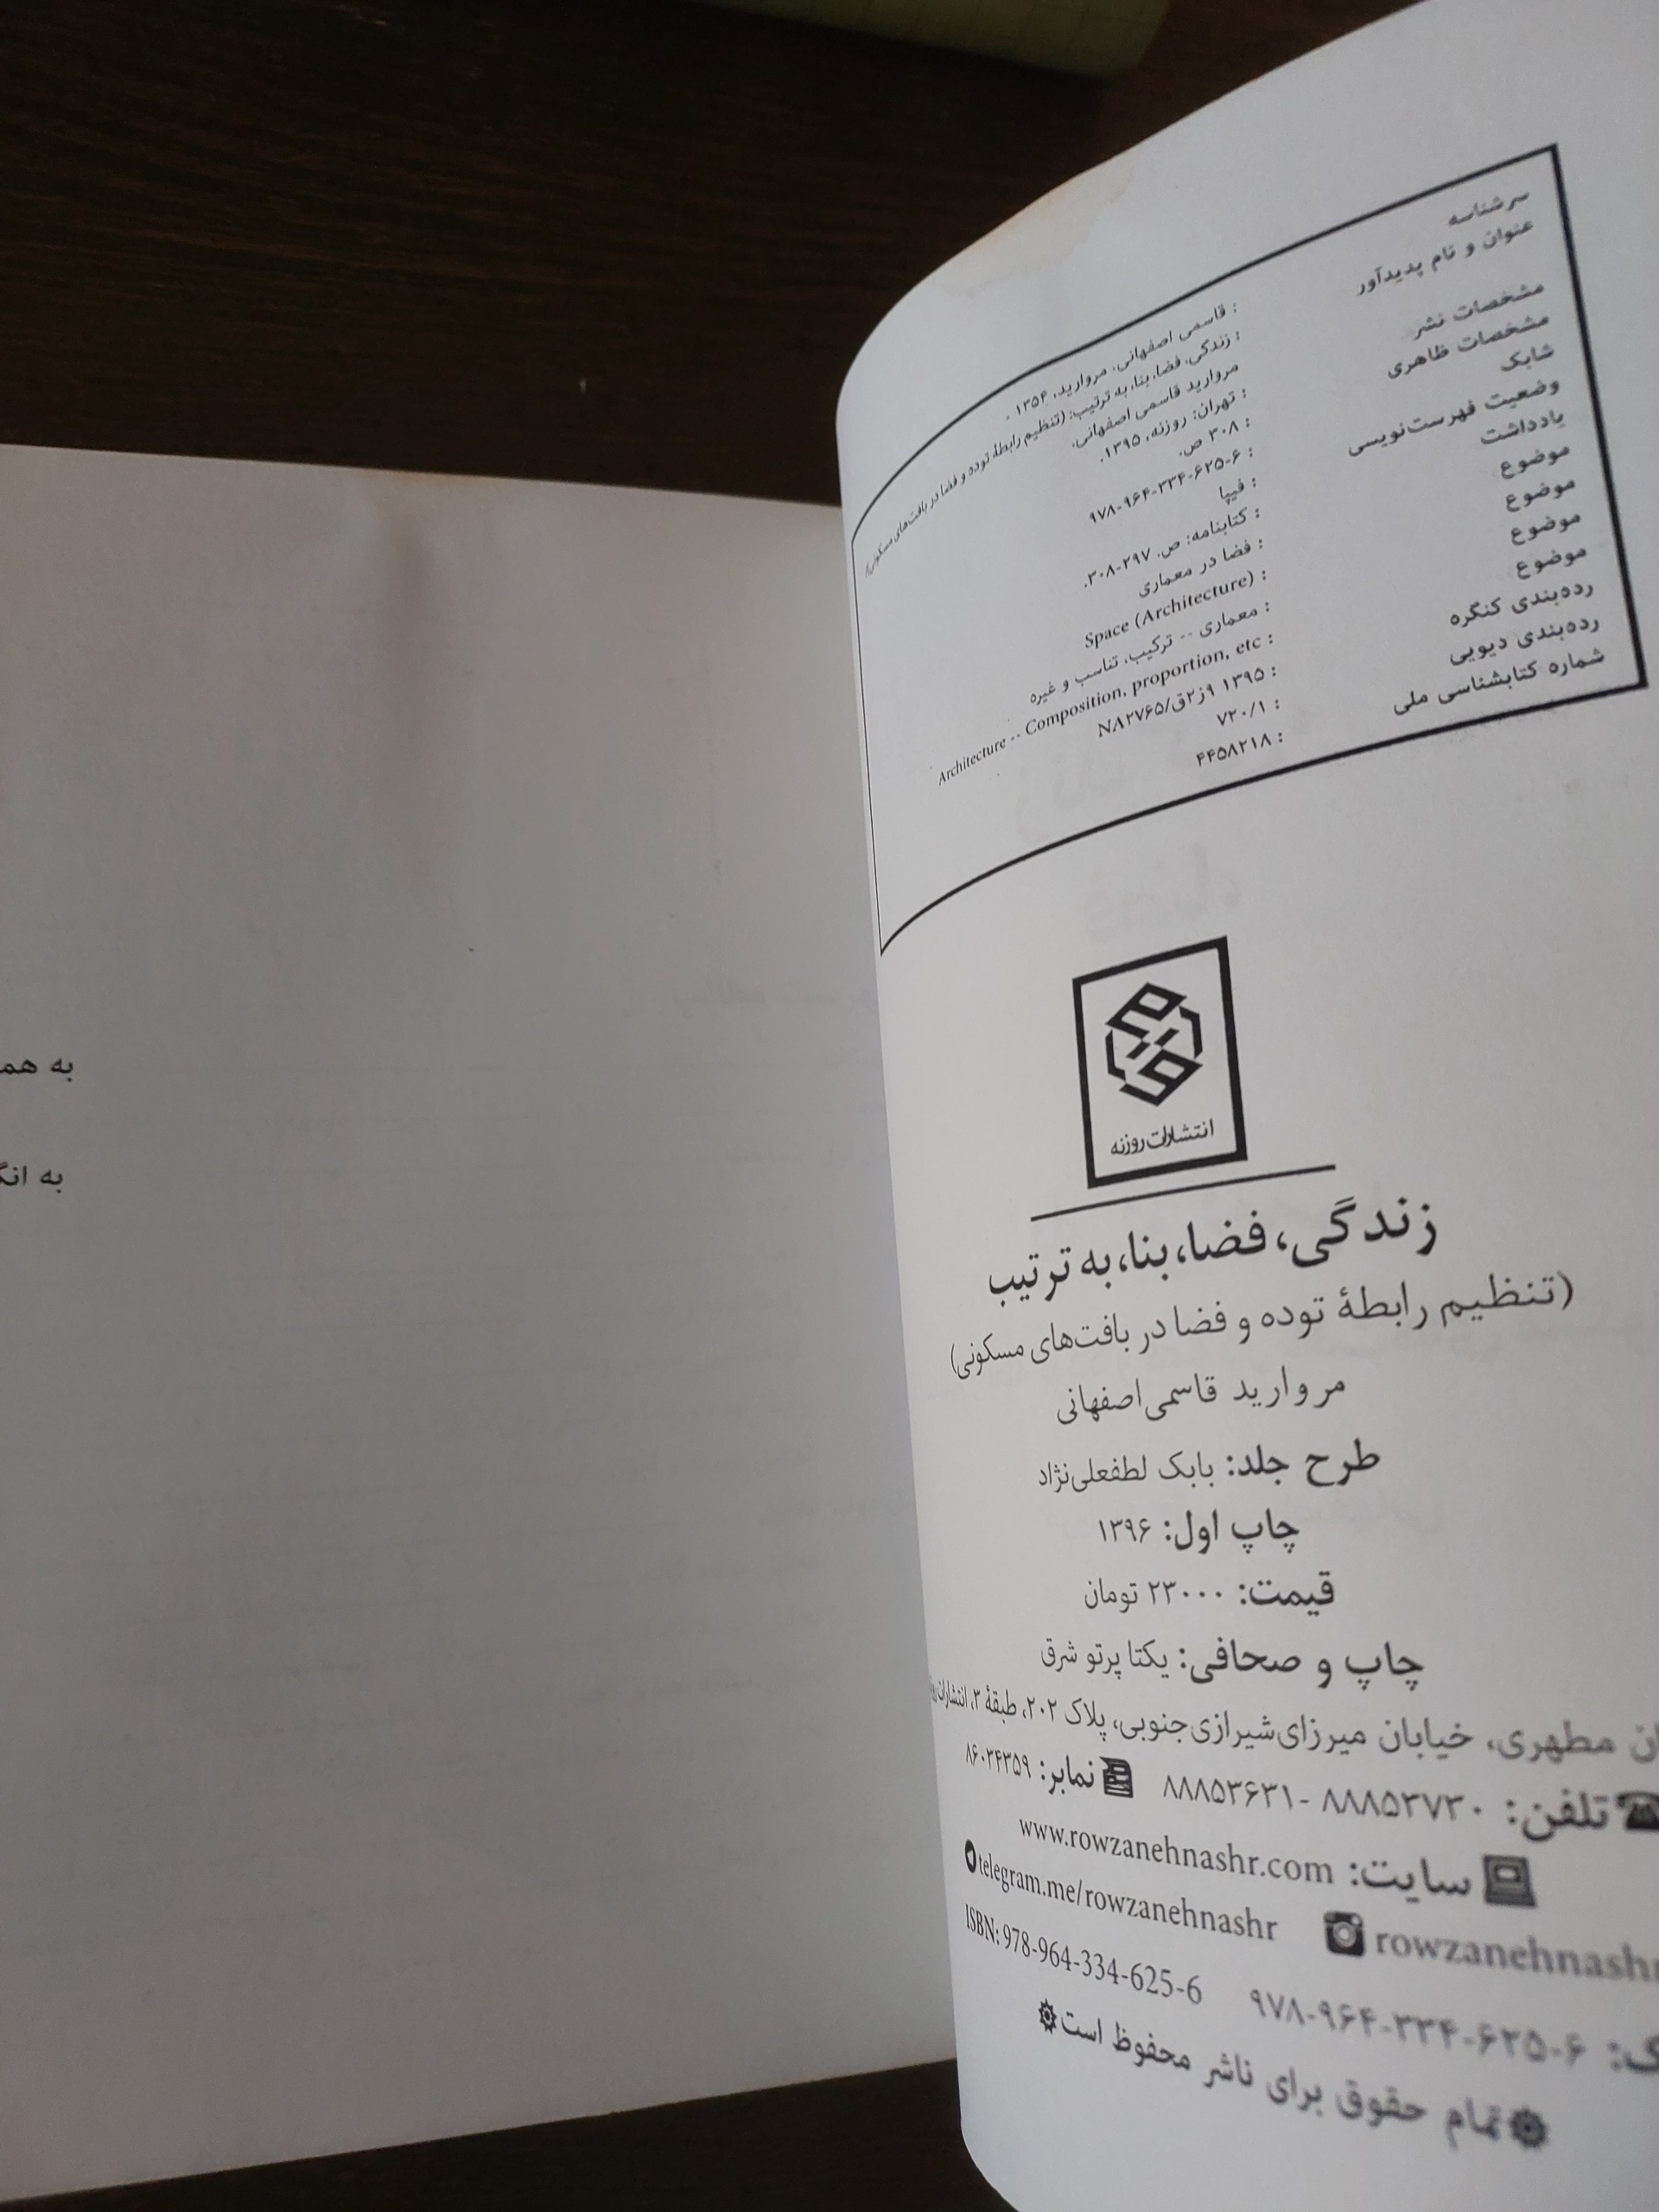 سرشناسه : قاسمی اصفهانی، مروارید، ۱۳۵۴ -
عنوان و نام پدیدآور : زندگی، فضا، بنا، به ترتیب: (تنظیم رابطهٔ توده و فضا در بافت‌های مسکونی)/
مروارید قاسمی اصفهانی.
مشخصات نشر : تهران: روزنه، ۱۳۹۵.
مشخصات ظاهری : ۳۰۸ ص.
شابک : ۹۷۸-۹۶۴-۳۳۴-۶۲۵-۶
وضعیت فهرست‌نویسی : فیپا
یادداشت : کتابنامه: ص. ۲۹۷-۳۰۸.
موضوع : فضا در معماری
موضوع : Space (Architecture)
موضوع : معماری -- ترکیب، تناسب و غیره
موضوع : Architecture -- Composition, proportion, etc
رده‌بندی کنگره : ۱۳۹۵ ۹ز۲ق/NA۲۷۶۵
رده‌بندی دیویی : ۷۲۰/۱
شماره کتابشناسی ملی : ۴۴۵۸۲۱۸
انتشارات روزنه
زندگی، فضا، بنا، به ترتیب
(تنظیم رابطهٔ توده و فضا در بافت‌های مسکونی)
مروارید قاسمی اصفهانی
طرح جلد: بابک لطفعلی‌نژاد
چاپ اول: ۱۳۹۶
قیمت: ۲۳۰۰۰ تومان
چاپ و صحافی: یکتا پرتو شرق
مطهری، خیابان میرزای‌شیرازی‌جنوبی، پلاک ۲۰۲، طبقهٔ ۳، انتشارات
تلفن: ۸۸۸۵۳۷۳۰ - ۸۸۸۵۳۶۳۱ نمابر: ۸۶۰۳۴۳۵۹
سایت: www.rowzanehnashr.com
telegram.me/rowzanehnashr rowzanehnashr
ISBN: 978-964-334-625-6 ۹۷۸-۹۶۴-۳۳۴-۶۲۵-۶
تمام حقوق برای ناشر محفوظ است
به هم
به